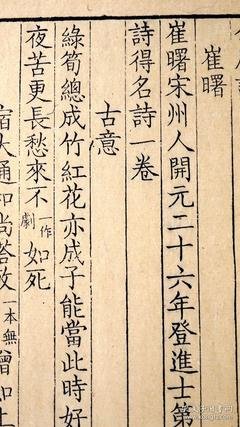 崔曙
崔曙宋州人開元二十六年登進士第
詩得名詩一卷
古意
綠筍總成竹紅花亦成子能當此時好
夜苦更長愁來不一作劇如死
一本無